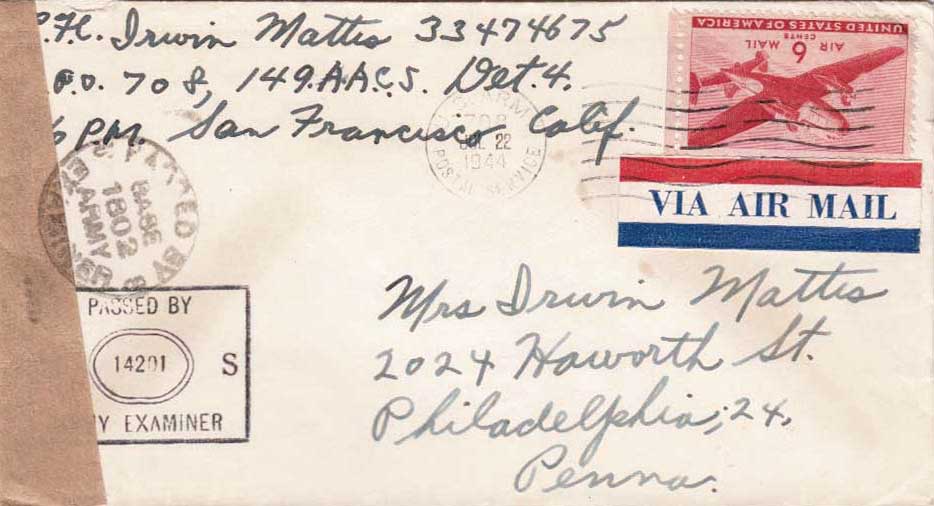 P.F.C. Irwin Mattis 33474675
P.O. 708, 149 A.A.C.S. Det. 4.
% P.M. San Francisco Calif.
UNITED STATES OF AMERICA
AIR MAIL
6 CENTS
U.S. ARMY
708
JUL 22
1944
POSTAL SERVICE
VIA AIR MAIL
BASE
1802
ARMY
PASSED BY
14201 S
Y EXAMINER
Mrs Irwin Mattis
2024 Haworth St.
Philadelphia, 24,
Penna.